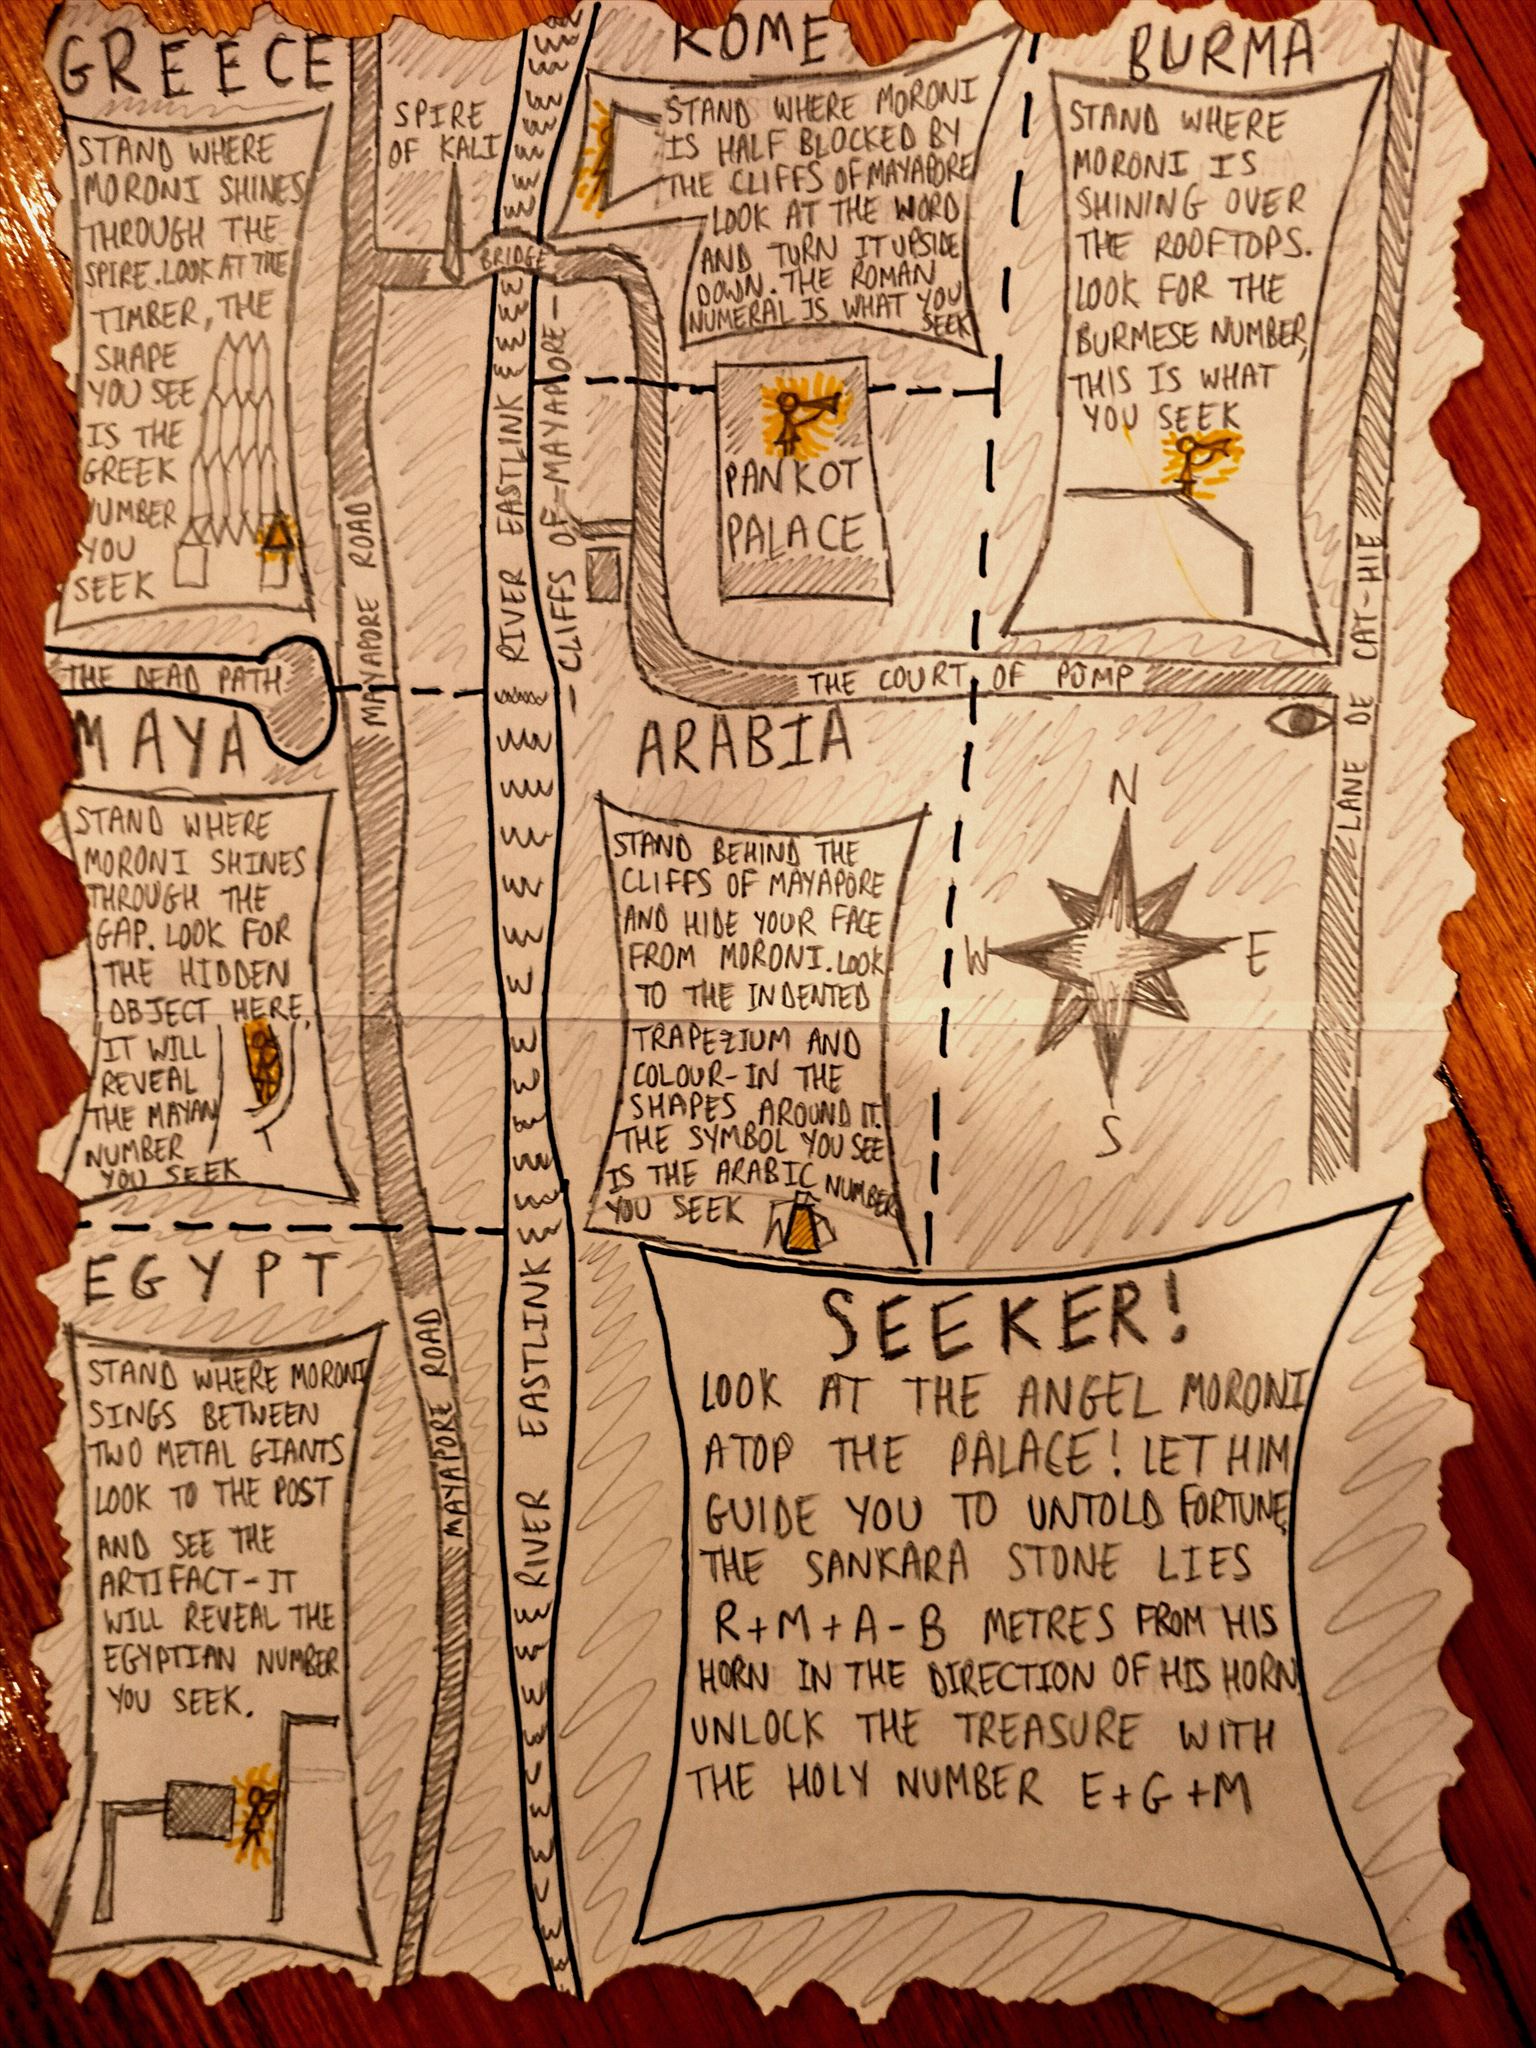 GREECE
STAND WHERE
MORONI SHINES
THROUGH THE
SPIRE. LOOK AT THE
TIMBER, THE
SHAPE
YOU SEE
IS THE
GREEK
NUMBER
YOU
SEEK
SPIRE
OF KALI
BRIDGE
ROME
STAND WHERE MORONI
IS HALF BLOCKED BY
THE CLIFFS OF MAYAPORE
LOOK AT THE WORD
AND TURN IT UPSIDE
DOWN. THE ROMAN
NUMERAL IS WHAT YOU
SEEK
BURMA
STAND WHERE
MORONI IS
SHINING OVER
THE ROOFTOPS.
LOOK FOR THE
BURMESE NUMBER,
THIS IS WHAT
YOU SEEK
PANKOT
PALACE
MAYAPORE ROAD
RIVER EASTLINK
CLIFFS OF-MAYAPORE-
LANE DE CAT-HIE
THE COURT OF POMP
THE DEAD PATH
MAYAPORE ROAD
MAYA
STAND WHERE
MORONI SHINES
THROUGH THE
GAP. LOOK FOR
THE HIDDEN
OBJECT HERE,
IT WILL
REVEAL
THE MAYAN
NUMBER
YOU SEEK
ARABIA
STAND BEHIND THE
CLIFFS OF MAYAPORE
AND HIDE YOUR FACE
FROM MORONI. LOOK
TO THE INDENTED
TRAPEZIUM AND
COLOUR-IN THE
SHAPES AROUND IT.
THE SYMBOL YOU SEE
IS THE ARABIC NUMBER
YOU SEEK
N
W
E
S
EGYPT
STAND WHERE MORONI
SINGS BETWEEN
TWO METAL GIANTS
LOOK TO THE POST
AND SEE THE
ARTIFACT-IT
WILL REVEAL THE
EGYPTIAN NUMBER
YOU SEEK.
MAYAPORE ROAD
RIVER EASTLINK
SEEKER!
LOOK AT THE ANGEL MORONI
ATOP THE PALACE! LET HIM
GUIDE YOU TO UNTOLD FORTUNE
THE SANKARA STONE LIES
R+M+A-B METRES FROM HIS
HORN IN THE DIRECTION OF HIS HORN.
UNLOCK THE TREASURE WITH
THE HOLY NUMBER E+G+M